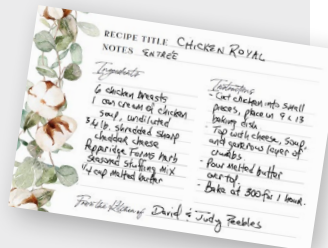 RECIPE TITLE CHICKEN ROYAL
NOTES ENTRÉE
Ingredients
6 chicken breasts
1 can cream of chicken
soup, undiluted
3/4 lb. shredded sharp
cheddar cheese
Pepperidge Farms herb
seasoned stuffing mix
1/4 cup melted butter
Instructions
- Cut chicken into small
pieces, place in 9 x 13
baking dish
- Top with cheese, soup,
and generous layer of
crumbs
- Pour melted butter
over top
- Bake at 300 for 1 hour.
From the Kitchen of David & Judy Peebles